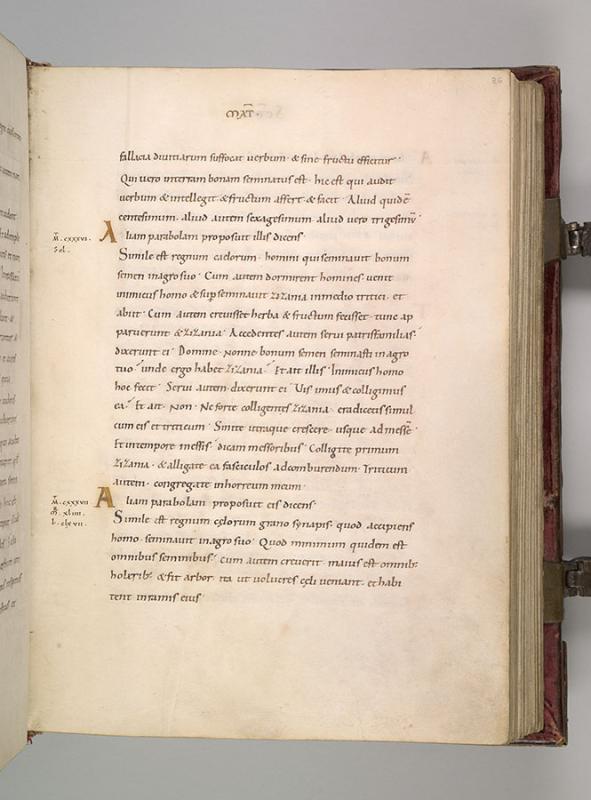 MAT̅
36
fallacia diuitiarum suffocat uerbum · & sine fructu efficitur ·
Qui uero interram bonam seminatus est · hic est qui audit
uerbum & intellegit · & fructum affert · & facit · Aliud quidē
centesimum · aliud autem sexagesimum · aliud uero trigesimū ·
M̅. cxxxvi.
Sol.
Aliam parabolam proposuit illis dicens ·
Simile est regnum caelorum · homini qui seminauit bonum
semen inagro suo · Cum autem dormirent homines · uenit
inimicus homo & sup̱ seminauit zizania inmedio tritici · et
abiit · Cum autem creuisset herba & fructum fecisset · tunc ap
paruerunt & zizania · Accedentes autem serui patrisfamilias ·
dixerunt ei · Domine · nonne bonum semen seminasti inagro
tuo · unde ergo habet zizania · Et ait illis · Inimicus homo
hoc fecit · Serui autem dixerunt ei · Uis imus & colligimus
ea · Et ait · Non · Ne forte colligentes zizania · eradicetis simul
cum eis et triticum · Sinite utraque crescere · usque ad messē ·
Et intempore messis · dicam messoribus · Colligite primum
zizania · & alligate ea fasciculos ad comburendum · Triticum
autem · congregate inhorreum meum ·
M̅. cxxxvii
M̅. xliiii.
L. clxvii.
Aliam parabolam proposuit eis dicens ·
Simile est regnum cęlorum grano synapis · quod accipiens
homo · seminauit inagro suo · Quod minimum quidem est
omnibus seminibus · Cum autem creuerit · maius est omnib;
holerib; · & fit arbor · ita ut uolucres cęli ueniant · et habi
tent inramis eius ·